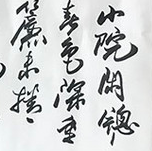 小院閑窗
春色深重
簾未捲